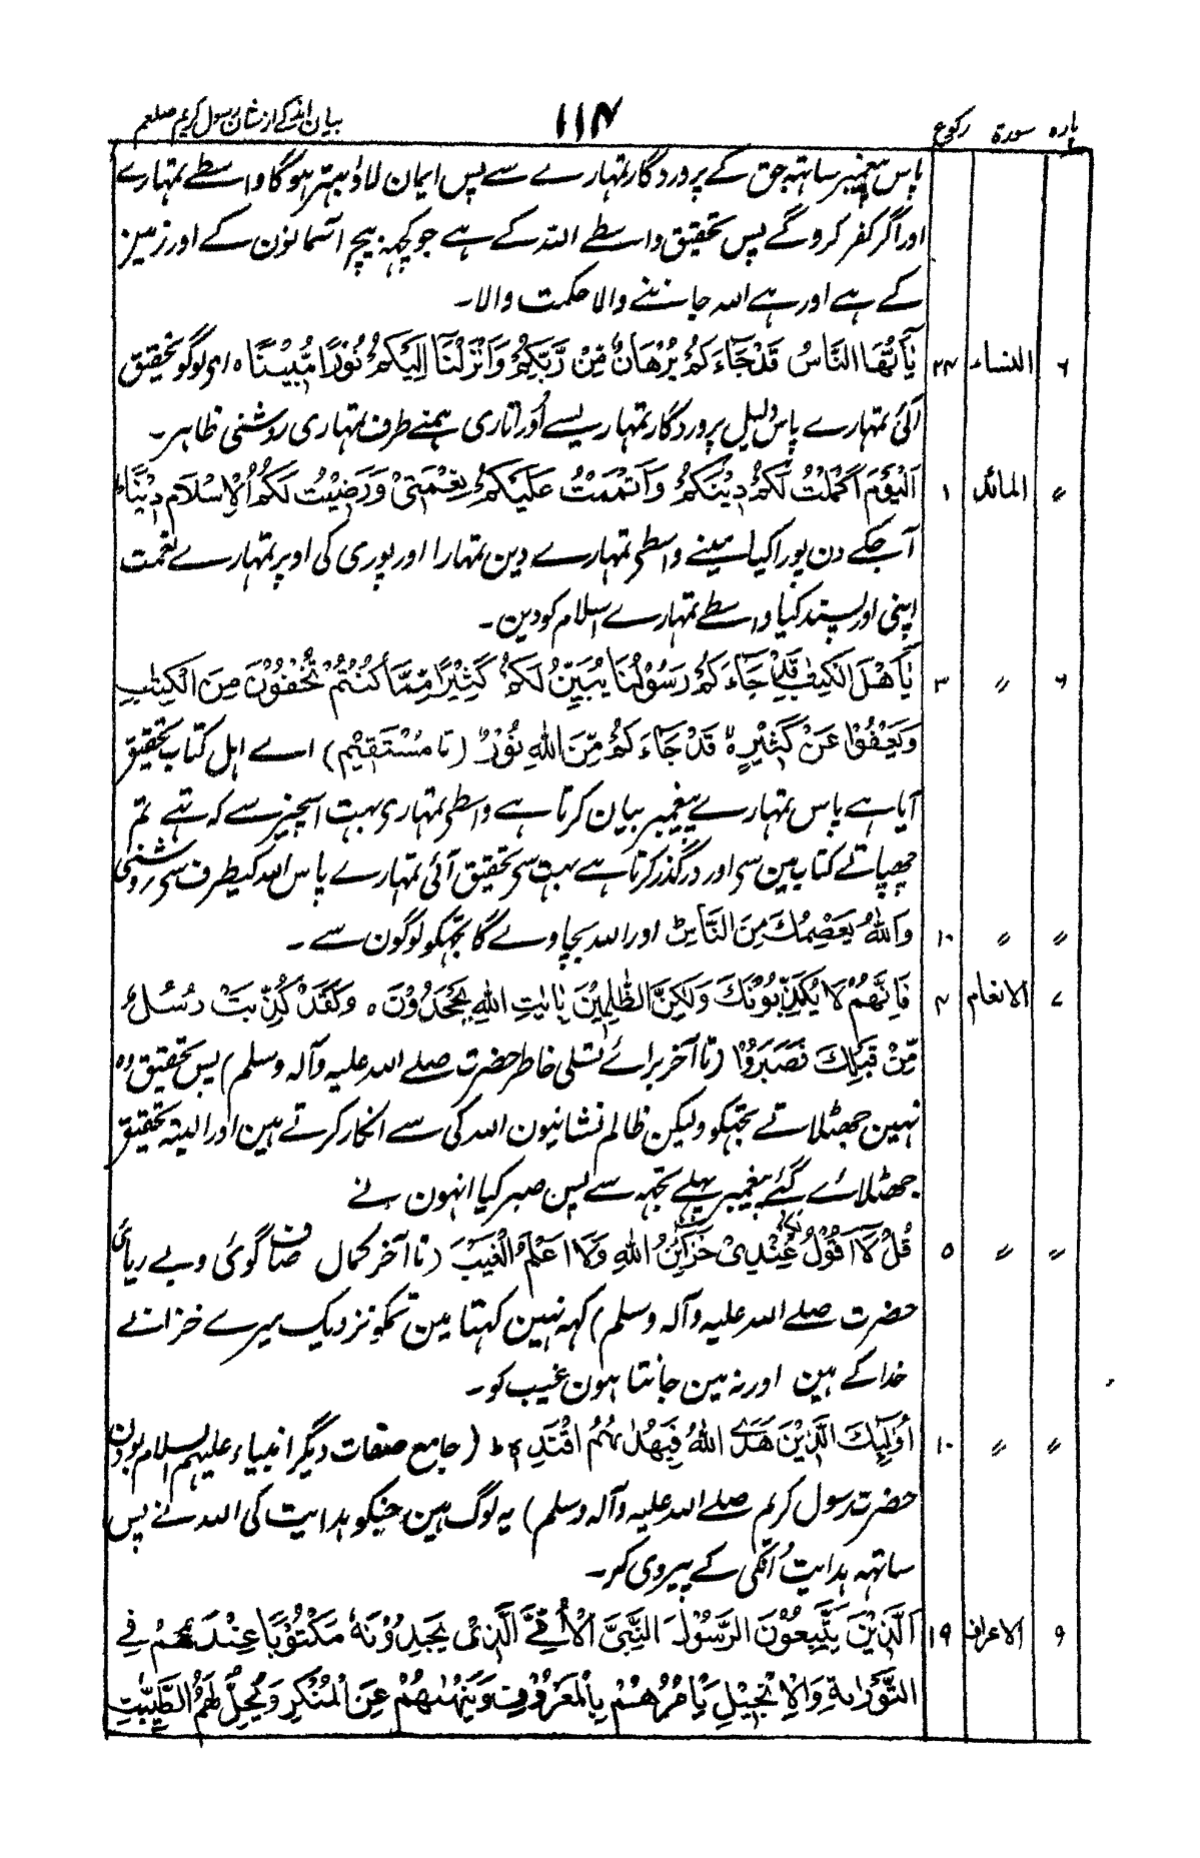 پارہ سورۃ رکوع ۱۱۴ بیان انکے از شان رسول کریم صلعم
پاس پیغمبر ساتہہ حق کے پروردگار تمہارے سے پس ایمان لاؤ بہتر ہوگا واسطے تمہارے
اور اگر کفر کروگے پس تحقیق واسطے اللہ کے ہے جو کچہہ بیچ آسمانون کے اور زمین
کے ہے اور ہے اللہ جاننے والا حکمت والا۔
۶ النساء ۲۴ یٰٓاَیُّھَا النَّاسُ قَدْ جَآءَکُمْ بُرْھَانٌ مِّنْ رَّبِّکُمْ وَاَنْزَلْنَآ اِلَیْکُمْ نُوْرًا مُّبِیْنًا ہ ای لوگو تحقیق
آئی تمہارے پاس دلیل پروردگار تمہاریسے اور اتاری ہمنے طرف تمہاری روشنی ظاہر۔
〃 المائدہ ۱ اَلْیَوْمَ اَکْمَلْتُ لَکُمْ دِیْنَکُمْ وَاَتْمَمْتُ عَلَیْکُمْ نِعْمَتِیْ وَرَضِیْتُ لَکُمُ الْاِسْلَامَ دِیْنًا ط
آجکے دن پورا کیا مینے واسطی تمہارے دین تمہارا اور پوری کی اوپر تمہارے نعمت
اپنی اور پسند کیا واسطے تمہارے اسلام کو دین۔
۶ 〃 ۳ یٰٓاَھْلَ الْکِتٰبِ قَدْ جَآءَکُمْ رَسُوْلُنَا یُبَیِّنُ لَکُمْ کَثِیْرًا مِّمَّا کُنْتُمْ تُخْفُوْنَ مِنَ الْکِتٰبِ
وَیَعْفُوْا عَنْ کَثِیْرٍ ہ قَدْ جَآءَکُمْ مِّنَ اللّٰہِ نُوْرٌ (تا مُسْتَقِیْم) اے اہل کتاب تحقیق
آیا ہے پاس تمہارے پیغمبر بیان کرتا ہے واسطی تمہاری بہت اسچیز سے کہ تہے تم
چھپاتے کتاب مین سی اور درگذر کرتا ہے بہت سی تحقیق آئی تمہارے پاس اللہ کیطرف سی روشنی
〃 〃 ۱۰ وَاللّٰہُ یَعْصِمُکَ مِنَ النَّاسِ ط اور اللہ بچاوے گا تجہکو لوگون سے۔
۷ الانعام ۴ فَاِنَّھُمْ لَا یُکَذِّبُوْنَکَ وَلٰکِنَّ الظّٰلِمِیْنَ بِاٰیٰتِ اللّٰہِ یَجْحَدُوْنَ ہ وَلَقَدْ کُذِّبَتْ رُسُلٌ
مِّنْ قَبْلِکَ فَصَبَرُوْا (تا آخر برائے تسلی خاطر حضرت صلے اللہ علیہ وآلہ وسلم) پس تحقیق وہ
نہین جھٹلاتے تجہکو ولیکن ظالم نشانیون اللہ کی سے انکار کرتے ہین اور البتہ تحقیق
جھٹلائے گئے پیغمبر پہلے تجہہ سے پس صبر کیا انہون نے
〃 〃 ۵ قُلْ لَّآ اَقُوْلُ لَکُمْ عِنْدِیْ خَزَآئِنُ اللّٰہِ وَلَآ اَعْلَمُ الْغَیْبَ (تا آخر کمال صاف گوئی و بے ریائی
حضرت صلے اللہ علیہ وآلہ وسلم) کہہ نہین کہتا مین تمکو نزدیک میرے خزانے
خدا کے ہین اور نہ مین جانتا ہون غیب کو۔
〃 〃 ۱۰ اُولٰٓئِکَ الَّذِیْنَ ھَدَی اللّٰہُ فَبِھُدٰىھُمُ اقْتَدِہْ ط (جامع صفات دیگر انبیاء علیہم السلام بودن
حضرت رسول کریم صلے اللہ علیہ وآلہ وسلم) یہ لوگ ہین جنکو ہدایت کی اللہ نے پس
ساتہہ ہدایت انکی کے پیروی کر۔
۹ الاعراف ۱۹ اَلَّذِیْنَ یَتَّبِعُوْنَ الرَّسُوْلَ النَّبِیَّ الْاُمِّیَّ الَّذِیْ یَجِدُوْنَہٗ مَکْتُوْبًا عِنْدَھُمْ فِی
التَّوْرٰىۃِ وَالْاِنْجِیْلِ یَاْمُرُھُمْ بِالْمَعْرُوْفِ وَیَنْھٰىھُمْ عَنِ الْمُنْکَرِ وَیُحِلُّ لَھُمُ الطَّیِّبٰتِ